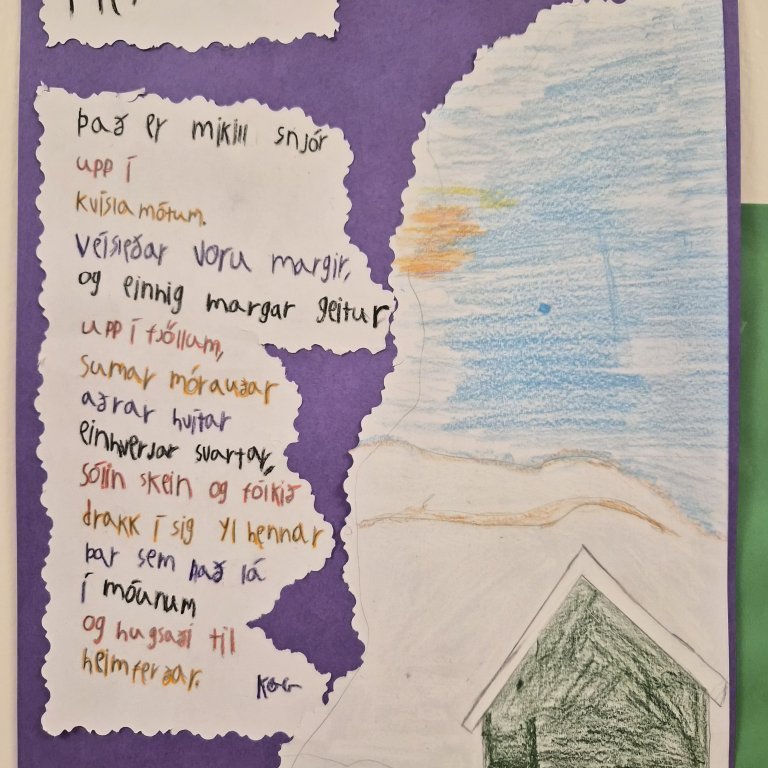 það er mikill snjór
upp í
kvísla mótum.
Veisleðar voru margir,
og einnig margar geitur
upp í fjöllum,
sumar mórauðar
aðrar hvítar
einhverjar svartar,
sólin skein og fólkið
drakk í sig yl hennar
þar sem það lá
í móunum
og hugsaði til
heimferðar.